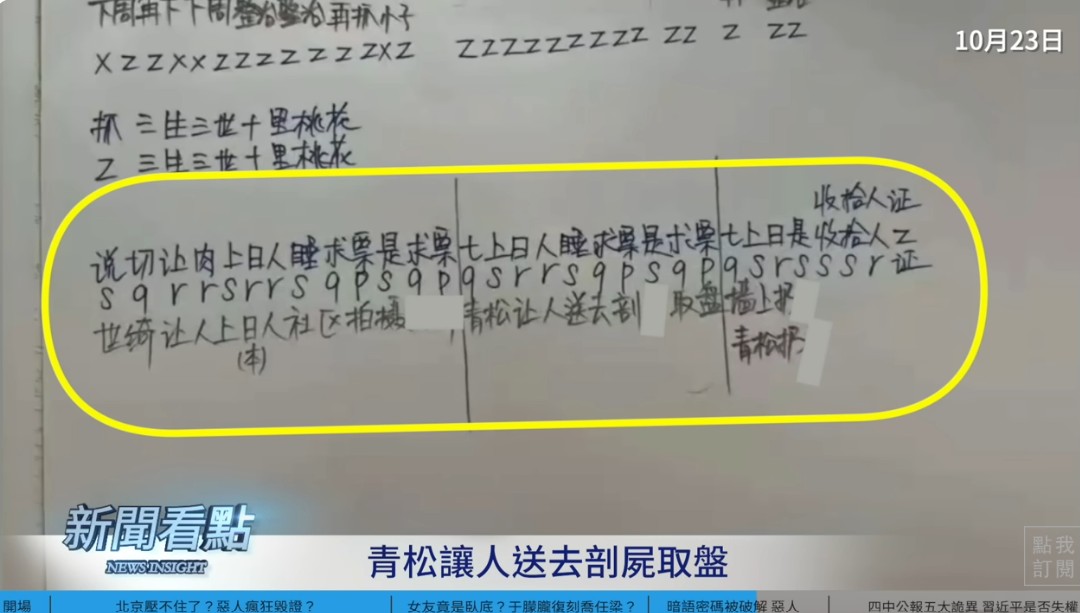 下周再下下周整治整治再抓小子
XZZXXZZZZZZZXZ ZZZZZZZZZ ZZ Z ZZ
10月23日
抓 三生三世十里桃花
Z 三生三世十里桃花
收拾人证
说切让肉上日人睡求票是求票 七上日人睡求票是求票 七上日是收拾人Z
s q r r s r r s q p s q p q s r r s q p s q p q s r s s s r 证
世绮让人上日人社区拍摄 青松让人送去剖 取盘 墙上抓
(本) 青松抓
新聞看點
NEWS INSIGHT
青松讓人送去剖屍取盤
點我
訂閱
開場 北京壓不住了?惡人瘋狂毀證? 女友竟是臥底?于朦朧復刻喬任梁? 暗語密碼被破解 惡人 四中公報五大詭異 習近平是否失權